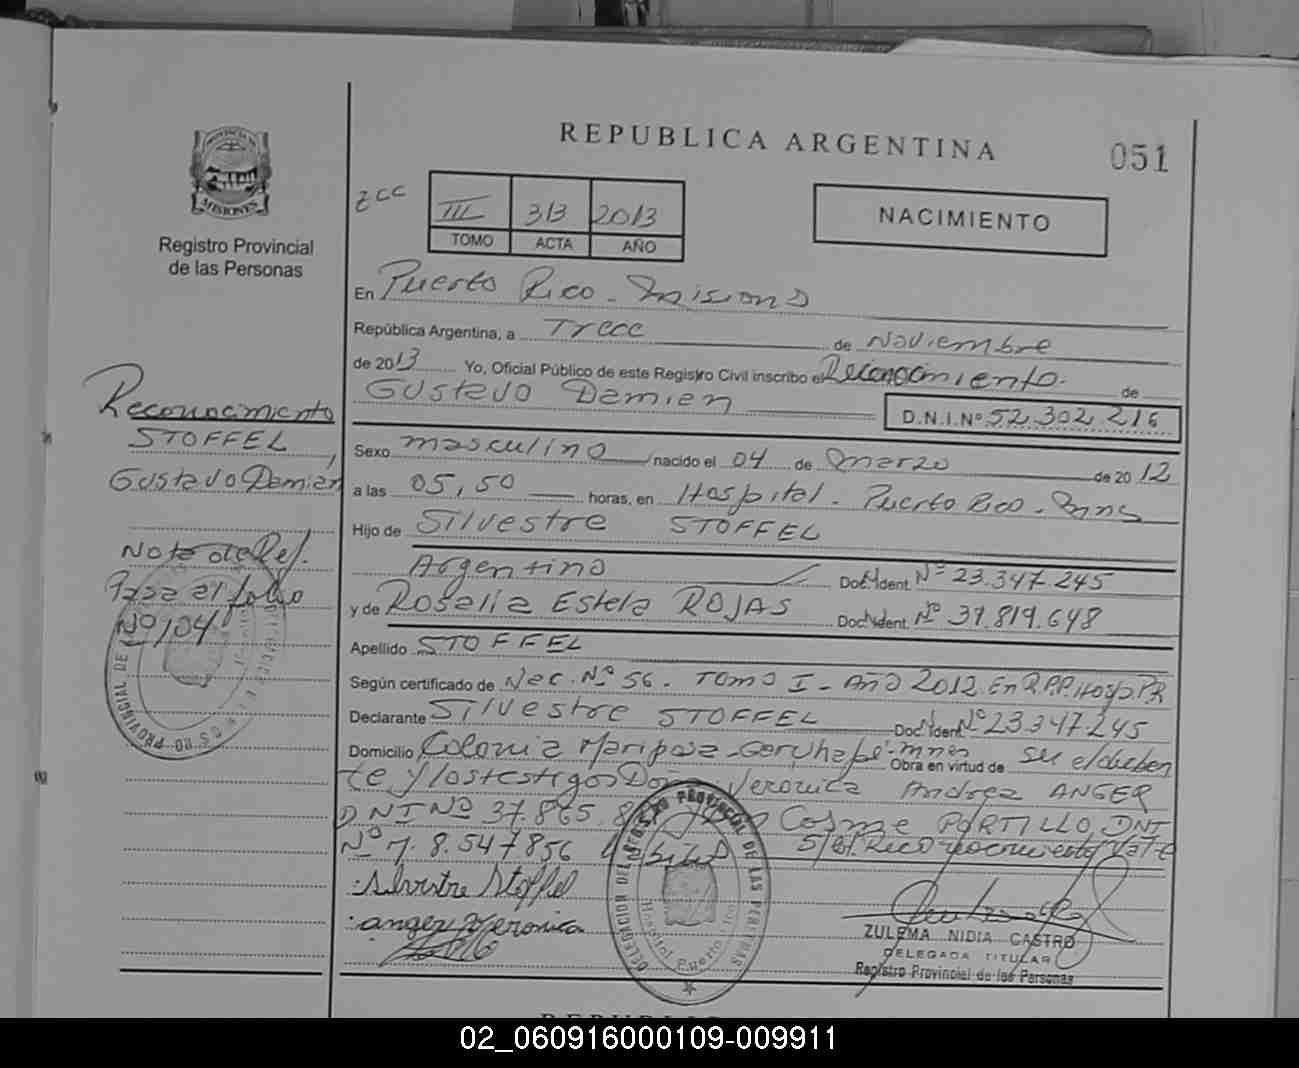 REPUBLICA ARGENTINA
051
PROVINCIA DE
MISIONES
Registro Provincial
de las Personas
III 313 2013
TOMO ACTA AÑO
NACIMIENTO
En Puerto Rico - Misiones
República Argentina, a Trece de Noviembre
de 2013 Yo, Oficial Público de este Registro Civil inscribo el Reconocimiento. de
Gustavo Damian D.N.I.Nº 52.302.216
Sexo masculino nacido el 04 de marzo de 2012
a las 05,50 horas, en Hospital - Puerto Rico - Mnes
Hijo de Silvestre STOFFEL
Argentino Doc. Ident. Nº 23.347.245
y de Rosalia Estela ROJAS Doc. Ident. Nº 37.819.648
Apellido STOFFEL
Según certificado de Nac. Nº 56. Tomo I - Año 2012. En R.P.P. Hosp PR
Declarante Silvestre STOFFEL Doc. Ident. Nº 23.347.245
Domicilio Colonia Mariposa - Garuhapé - mnes Obra en virtud de su
te y los testigos Veronica Andrea ANGER
DNI Nº 37.865. Cosme PORTILLO, DNI
Nº 8.547856 S/B. Reconocimiento Vale
Silvestre Stoffel
anger Veronica
ZULEMA NIDIA CASTRO
DELEGADA TITULAR
Registro Provincial de las Personas
Reconocimiento
STOFFEL,
Gustavo Damian
Nota de Ref.
Pasa al folio
Nº 104
DELEGACION DEL REGISTRO PROVINCIAL DE LAS PERSONAS
Hospital Puerto Rico
02_060916000109-009911